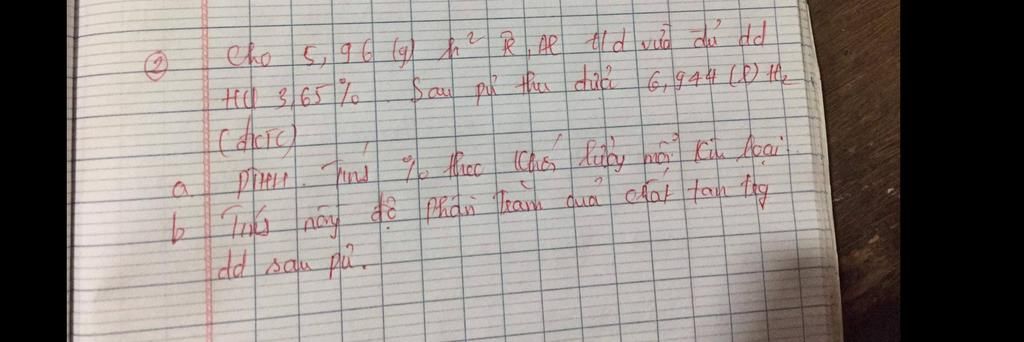 ② Cho 5,96 (g) h² R, Al t/d vừa đủ dd
HCl 3,65% . Sau pứ thu được 6,944 (l) H₂
(đktc)
a PTHH . Tính % theo khối lượng mỗi kim loại
b Tính nồng độ phần trăm của chất tan trg
dd sau pứ.